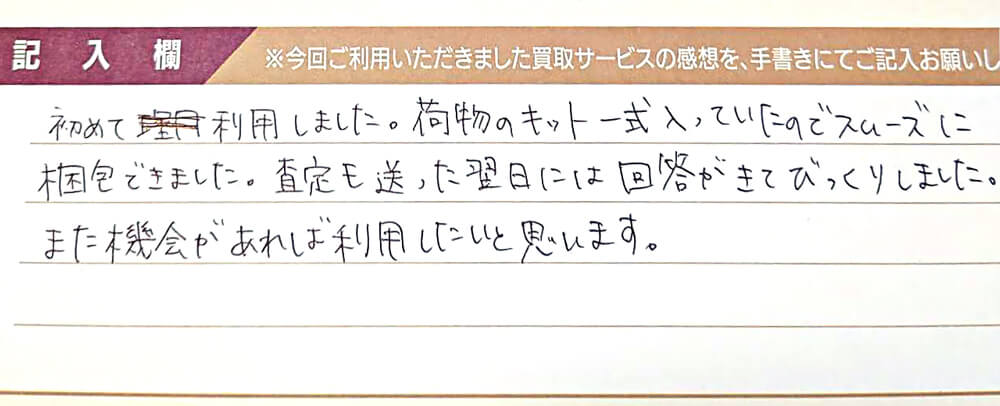 記入欄
※今回ご利用いただきました買取サービスの感想を、手書きにてご記入お願いし
初めて利用しました。荷物のキット一式入っていたのでスムーズに
梱包できました。査定も送った翌日には回答がきてびっくりしました。
また機会があれば利用したいと思います。